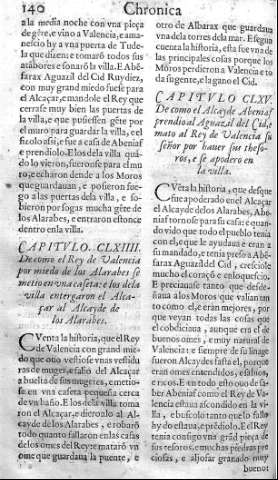 140
Chronica
a la media noche con vna pieça
de gẽte, e vino a Valencia, e ama-
nescio hy a vna puerta de Tude-
la que dizen; e tomarõ todos sus
atabores e sonarõ la villa. E Abẽ-
farax Aguazil del Cid Ruydiez,
con muy grand miedo fuese para
el Alcaçar, e mando el Rey que
cerrasse muy bien las puertas de
la villa, e que pusiessen gẽte por
el muro para guardar la villa, e el
fizolo assi, e fue a casa de Abeniaf
e prendiolo. E los dela villa quã-
do lo vieron, fuerose para el mu-
ro, e echaron dende a los Moros
que guardauan, e posieron fue-
go a las puertas dela villa, e so-
bieron por sogas mucha gẽte de
los Alarabes, e entraron estonce
dentro en la villa.
CAPITVLO. CLXIIII.
De como el Rey de Valencia
por miedo de los Alarabes se
metio en vna caseta: e los dela
villa entergaron el Alca-
çar al Alcayde de
los Alarabes.
CVenta la historia, que el Rey
de Valencia con grand mie-
do que ouo, vestiose vnas vestidu-
ras de muger, e salio del Alcaçar
a buelta de sus mugeres, e metio-
se en vna caseta pequeña cerca
de vn baño. E los dela villa toma
ron el Alcaçar, e dieronlo al Al-
cayde de los Alarabes, e robarõ
todo quanto fallaron en las casas
delos omes del Rey: e mataro vn
ome que guardaua la puente, e
otro de Albarax que guardaua
vna dela torres dela mar. E segun
cuenta la historia, esta fue vna de
las principales cosas porque los
Moros perdieron a Valencia e to
da su gente, e la gano el Cid.
CAPITVLO CLXV.
De como el Alcayde Abeniaf
prendio al Aguazil del Cid, e
mato al Rey de Valencia su
señor por hauer sus theso-
ros, e se apodero en
la villa.
CVẽta la historia, que despues
fue apoderado en el Alcaçar
el Alcayde delos Alarabes, Abe-
niaf tornose para su casa: e quan-
do vido que todo el pueblo tenia
con el, e que le ayudaua e eran a
su mandado, e tenia preso a Abẽ-
farax Aguazil del Cid, crescio le
mucho el coraçõ e enloquescio.
E preciauase tanto que desde-
ñaua a los Moros que valian tan
to como el, e eran mejores, por
que veyan todas las cosas que
el cobdiciaua, aunque era el de
buenos omes, e muy natural de
Valencia: e siempre de su linage
fueron Alcaydes hasta el, porque
eran omes entendidos, e sabios,
e ricos. E en todo esto ouo de sa-
ber Abeniaf como el Rey de Va-
lencia estaua ascondido en la vi-
lla, e buscolo tanto que lo fallo
hy do estaua, e prẽdiolo. E el Rey
tenia consigo vna grãd pieça de
sus tesoros, e muchas piedras pre
ciosas, e aljofar granado muy
bueno